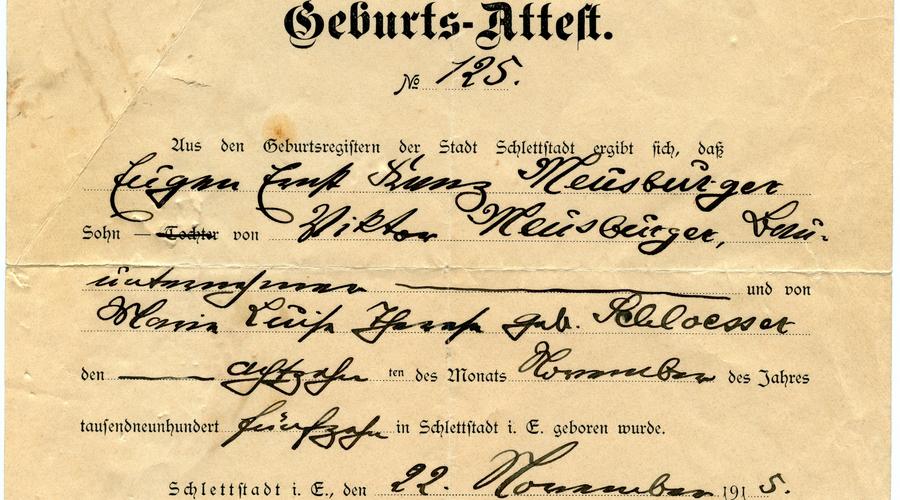 Geburts-Attest.
No 125.
Aus den Geburtsregistern der Stadt Schlettstadt ergibt sich, daß
Eugen Ernst Franz Meusburger
Sohn — Tochter von Viktor Meusburger, Bau-
unternehmer und von
Maria Luise Therese geb. Schloesser
den achtzehn ten des Monats November des Jahres
tausendneunhundert fünfzehn in Schlettstadt i. E. geboren wurde.
Schlettstadt i. E., den 22. November 1915.